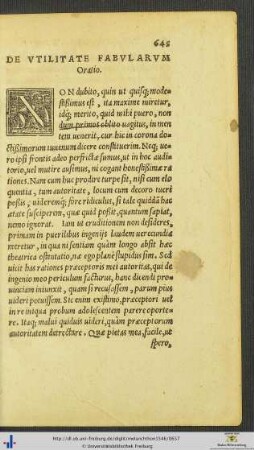 645
DE VTILITATE FABVLARVM
Oratio.
NON dubito, quin ut quisq; mode-
stißimus est, ita maxime miretur,
idq; merito, quid mihi puero, non
dum primos oblito uagitus, in men
tem uenerit, cur hic in corona do-
ctißimorum iuuenum dicere constituerim. Neq; ue-
ro ipsi frontis adeo perfrictæ sumus, ut in hoc audi
torio, uel mutire ausimus, ni cogant honestißimæ ra
tiones. Nam cum huc prodire turpe sit, nisi cum elo
quentia, tum autoritate, locum cum decoro tueri
poßis, uideremq; fore ridiculus, si tale quiddã hac
ætate susciperem, quæ quid poßit, quantum sapiat,
nemo ignorat. Iam ut eruditionem non desideres,
primam in puerilibus ingenijs laudem uerecundia
meretur, in qua ni sentiam quàm longo absit hæc
theatrica ostentatio, næ ego planè stupidus sim. Sed
uicit has rationes præceptoris mei autoritas, qui de
ingenio meo periculum facturus, hanc dicendi pro-
uinciam iniunxit, quam si recusassem, parum pius
uideri potuissem. Sic enim existimo, præceptori uel
in re iniqua probum adolescentem parere oporte-
re. Itaq; malui quiduis uideri, quàm præceptorum
autoritatem detrectare. Quæ pietas mea, facile, ut
spero,
http://dl.ub.uni-freiburg.de/diglit/melanchthon1546/0657
© Universitätsbibliothek Freiburg